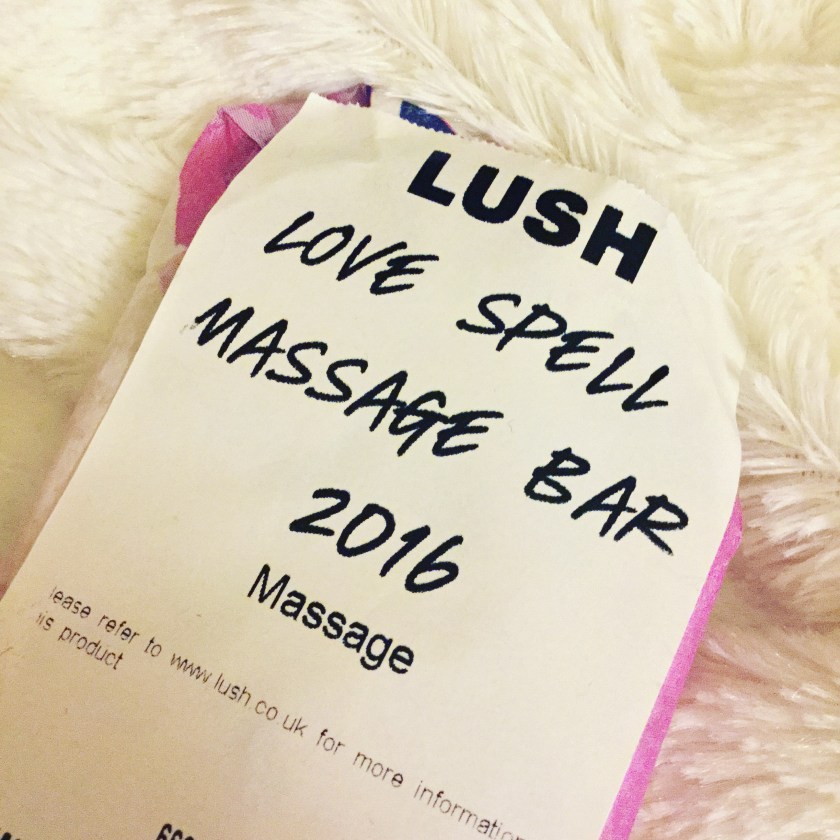 LUSH
LOVE SPELL
MASSAGE BAR
2016
Massage
lease refer to www.lush.co.uk for more informatio
is product